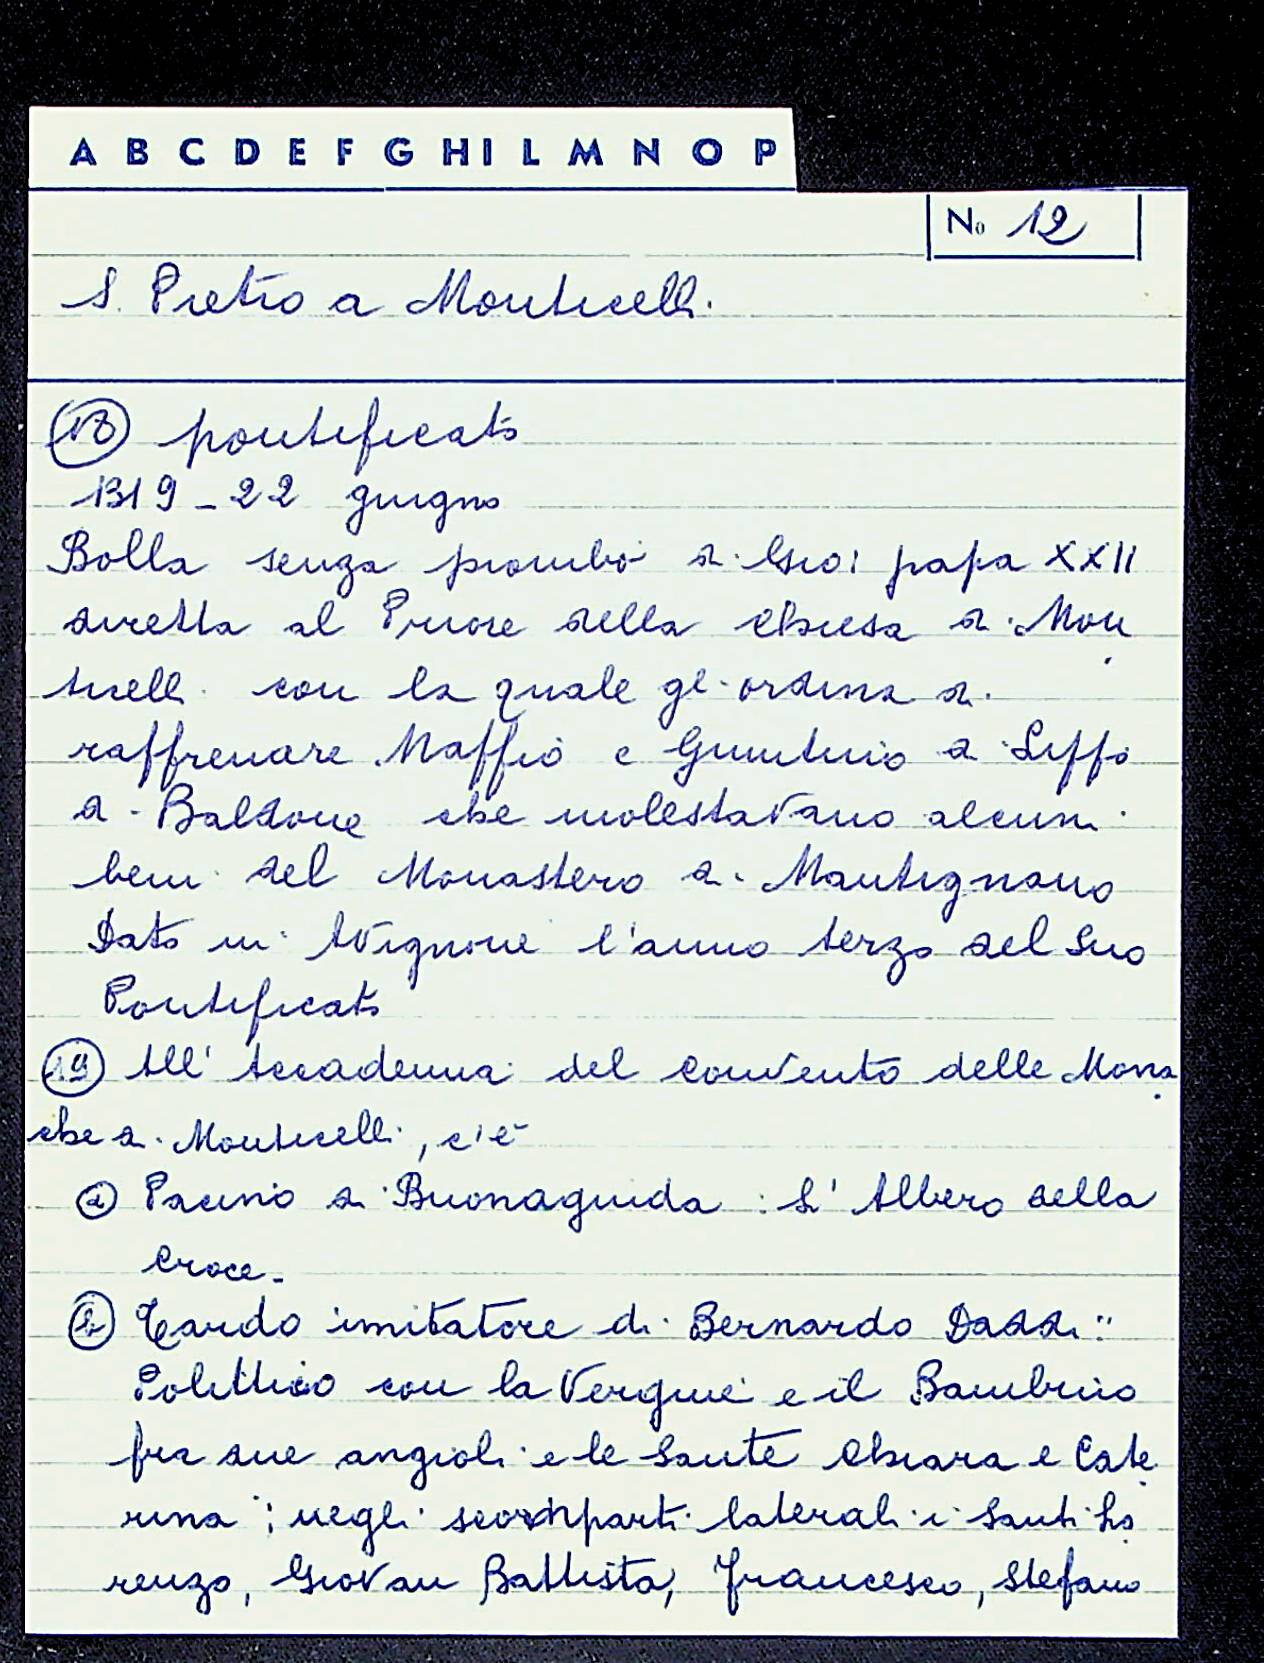 A B C D E F G H I L M N O P
No 12
S. Pietro a Monticelli.
18 pontificato
1319 - 22 giugno
Bolla senza piombo di Gio: papa XXII
diretta al Priore della Chiesa di Mon
ticelli con la quale gli ordina di
raffrenare Maffio e Giuntino di Lippo
di Baldone che molestavano alcuni
beni del Monastero di Mantignano
Dato in Avignone l'anno terzo del suo
Pontificato
19 All' Accademia del Convento delle Mona
che di Monticelli, c'è
a Pacino di Buonaguida : L' Albero della
Croce -
b Tardo imitatore di Bernardo Daddi :
Polittico con la Vergine e il Bambino
fra due angioli e le Sante Chiara e Cate
rina ; negli scomparti laterali i Santi Lo
renzo, Giovan Battista, Francesco, Stefano